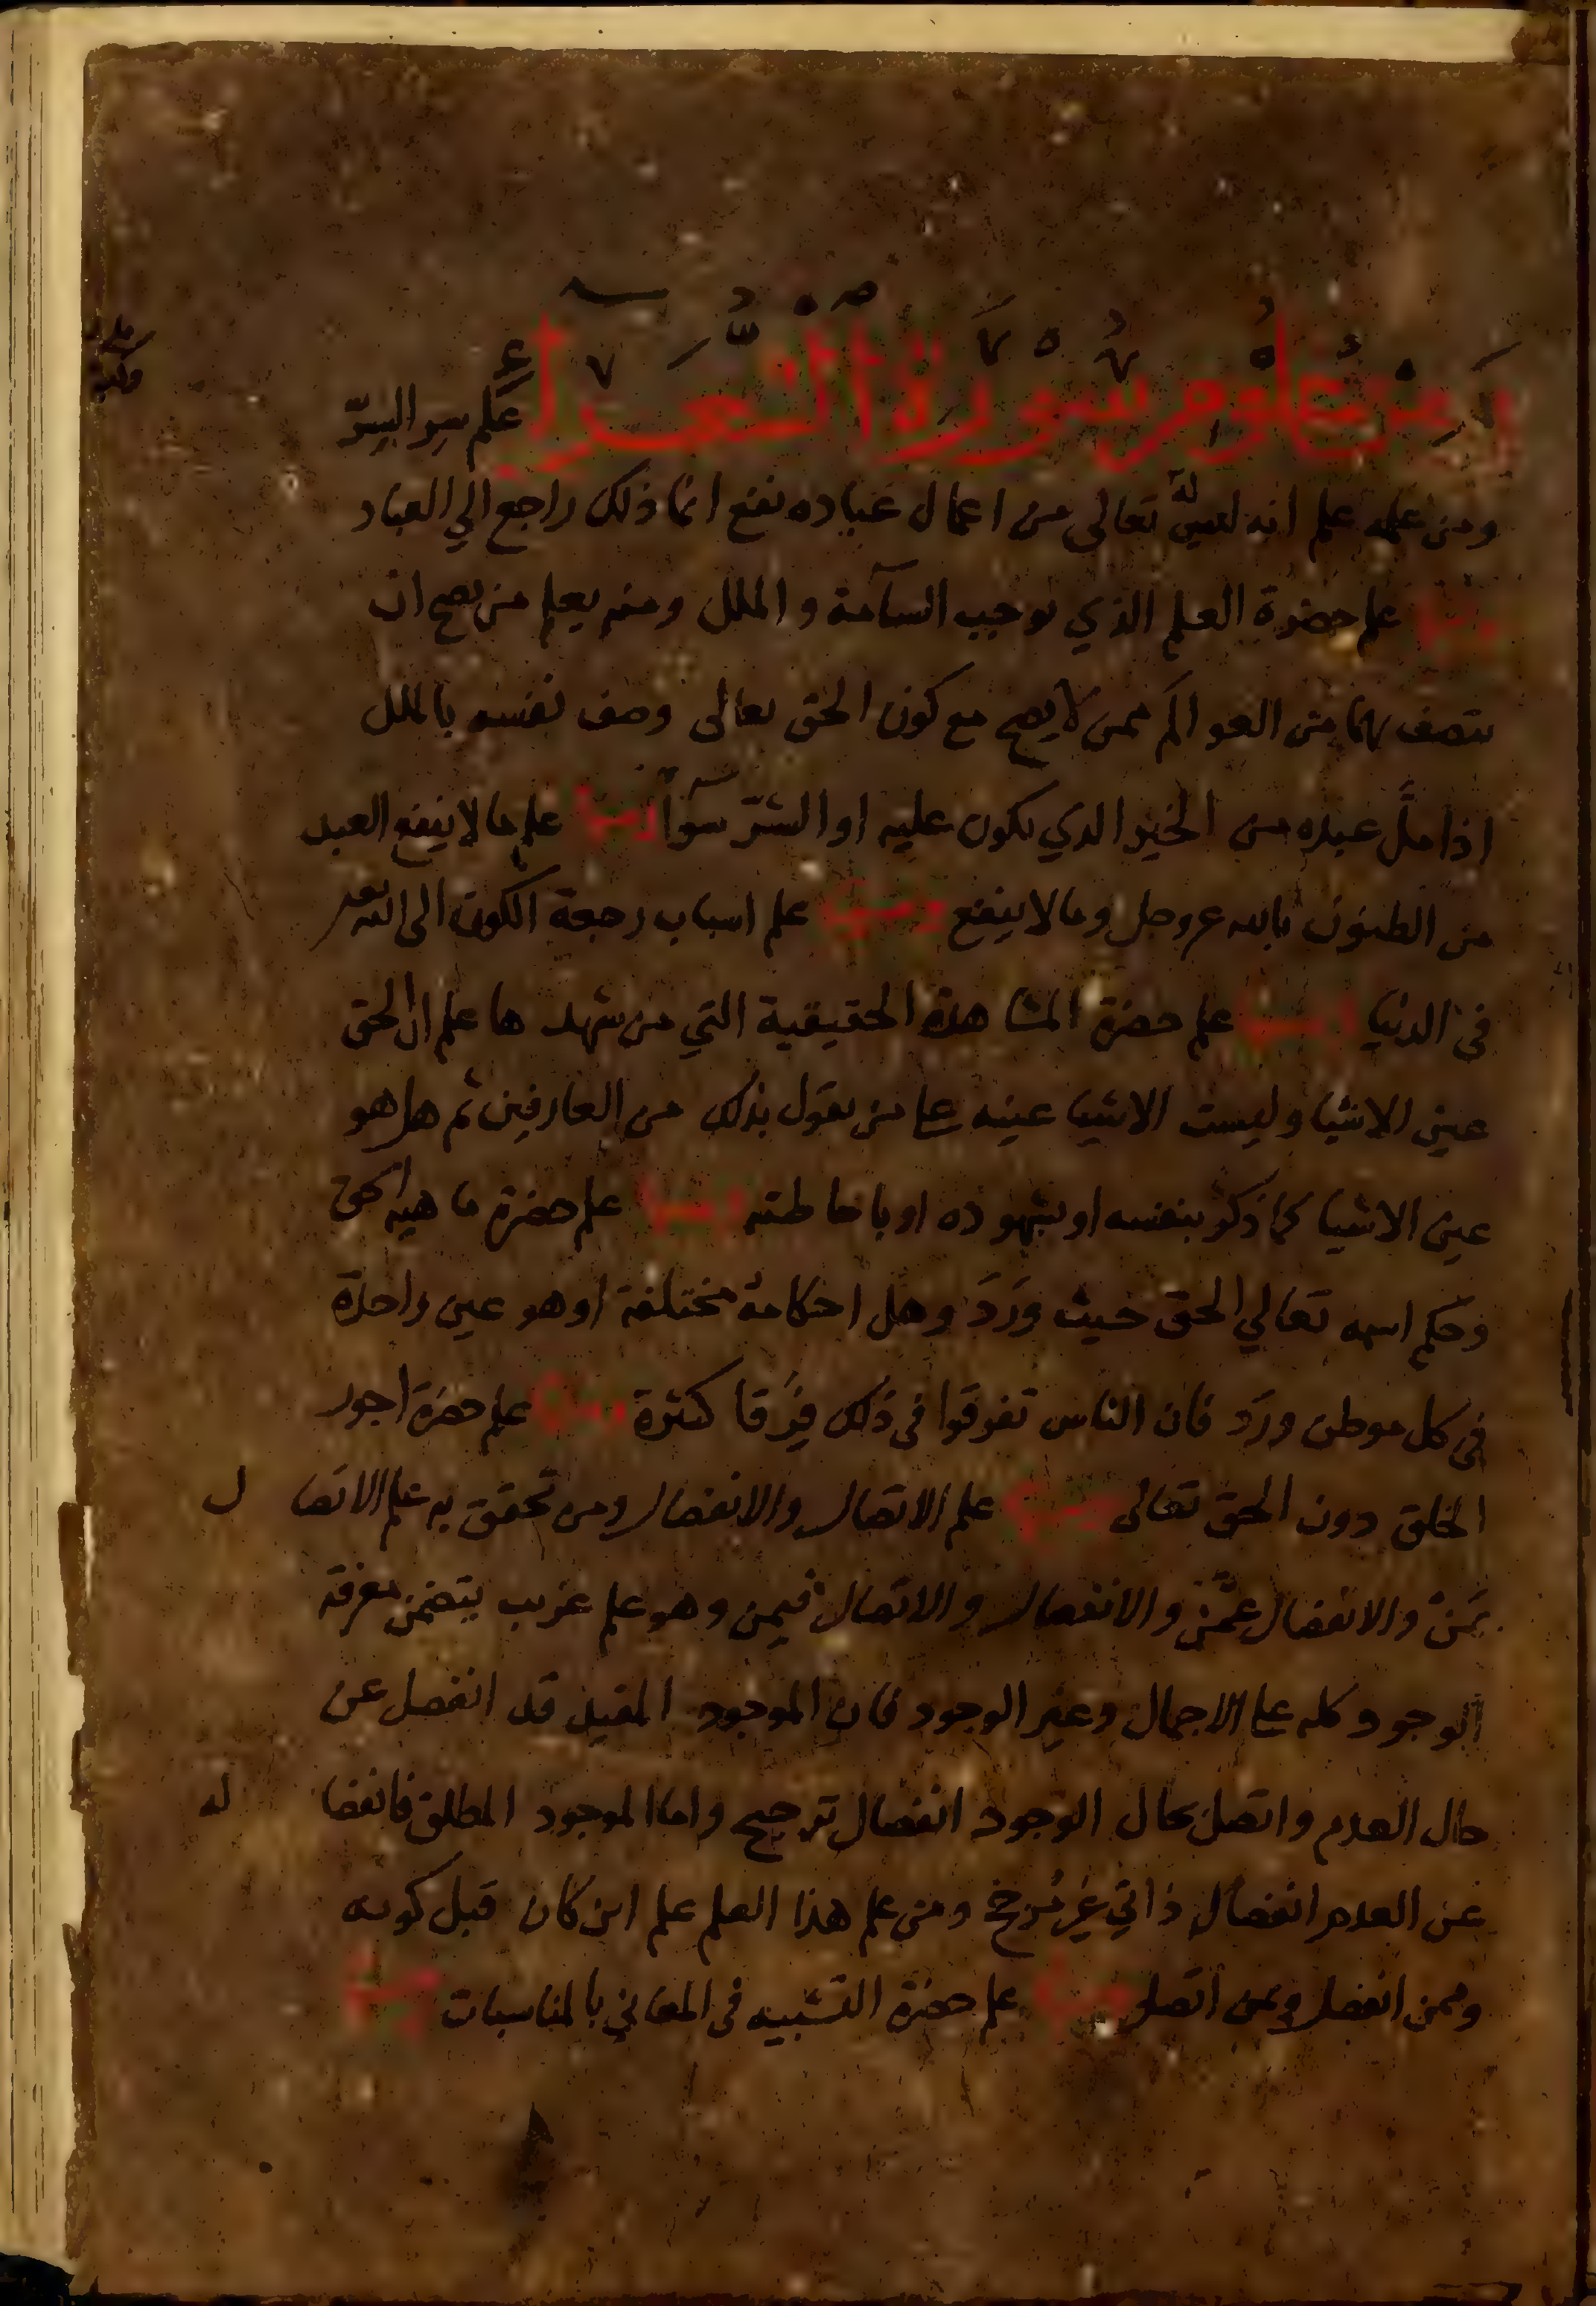 ومن علوم سورة الشعراء علم سر السرّ
ومن علمه علم انه ليس لله تعالى من اعمال عباده نفع انما ذلك راجع الي العباد
ومنها علم حضرة العلم الذي يوجب السآمة والملل ومنه يعلم من يصح ان
يتصف بهما من العوالم ممن لا يصح مع كون الحق تعالى وصف نفسه بالملل
اذا ملَّ عبده من الخير الذي يكون عليه او الشرّ سوآ ومنها علم ما لا ينفع العبد
من الظنون بالله عز وجل وما لا ينفع ومنها علم اسباب رجعة الكون الى الله تعه
في الدنيا ومنها علم حضرة المشاهدة الحقيقية التي من شهدها علم ان الحق
عين الاشيا وليست الاشيا عينه على من يقول بذلك من العارفين ثم هل هو
عين الاشيا كما ذكر بنفسه او بشهوده او باحاطته ومنها علم حضرة ماهية الحق
وحكم اسمه تعالي الحق حيث وَرَدَ وهل احكامه مختلفة او هو عين واحدة
في كل موطن ورَد فان الناس تفرقوا في ذلك فِرَقا كثيرة ومنها علم حضرة اجور
الخلق دون الحق تعالى ومنها علم الاتصال والانفصال ومن تحقق به علم الاتصال
بمَنْ والانفصال عمَّن والانفصال والاتصال فيمن وهو علم غريب يتضمن معرفة
الوجود كله على الاجمال وغير الوجود فان الموجود المقيد قد انفصل عن
حال العدم واتصل بحال الوجود انفصال ترجيح واما الموجود المطلق فانفصاله
عن العدم انفصال ذاتي غير مُرجّح ومن علم هذا العلم علم اين كان قبل كونه
وممن انفصل وبمن اتصل ومنها علم حضرة التشبيه في المعاني بالمناسبات ومنها